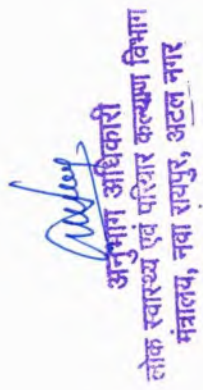 अनुभाग अधिकारी
लोक स्वास्थ्य एवं परिवार कल्याण विभाग
मंत्रालय, नवा रायपुर, अटल नगर